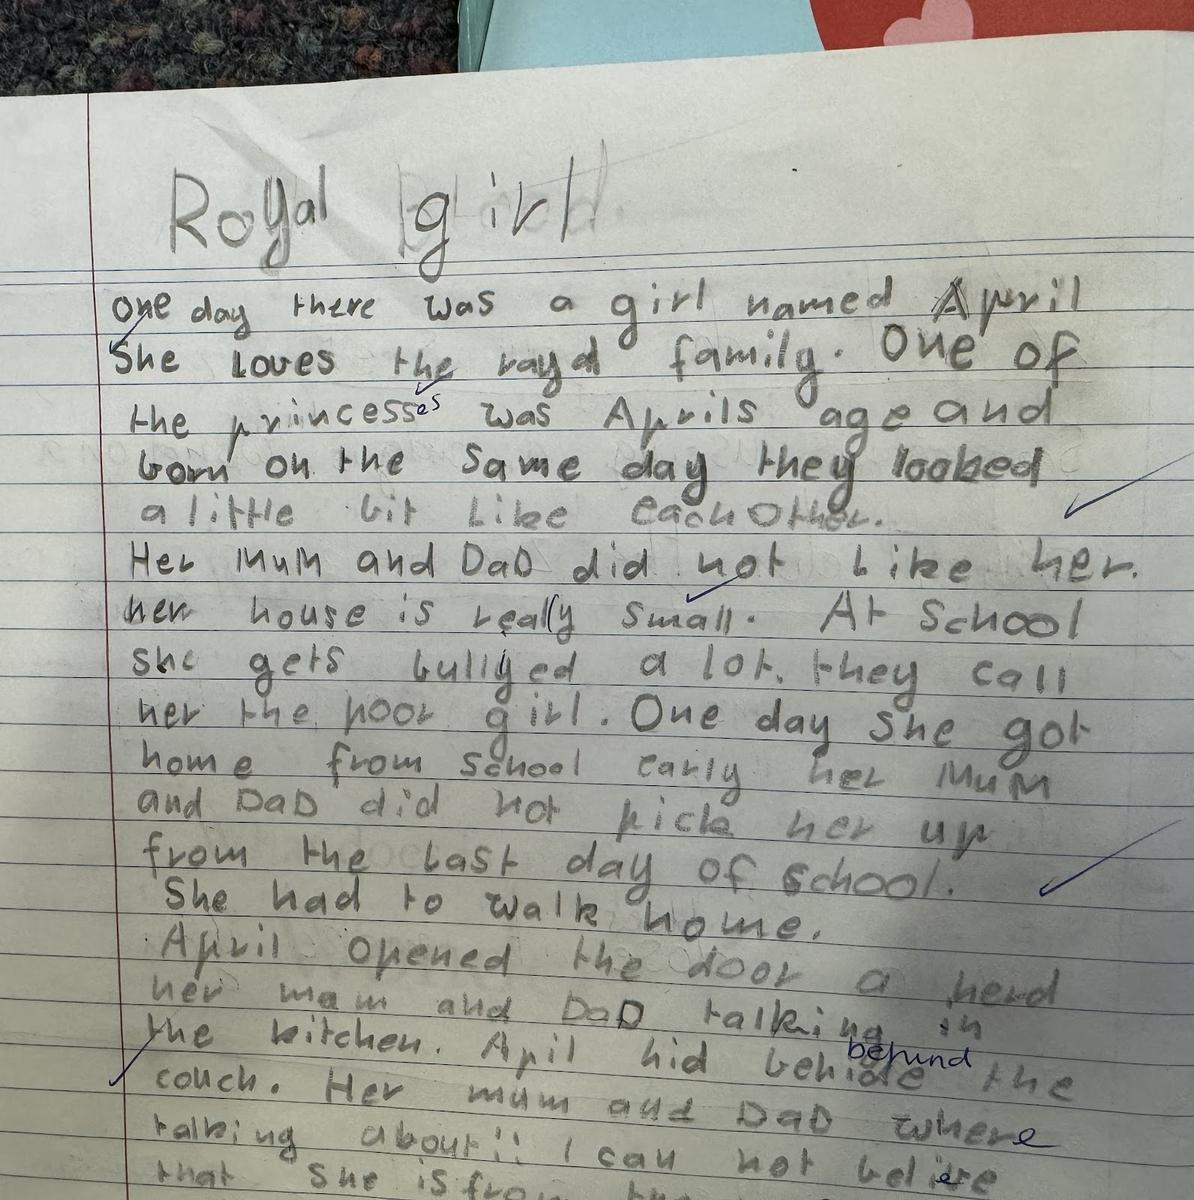 Royal girl
One day there was a girl named April
She Loves the rayd family. One of
the princesses was Aprils age and
born on the Same day they looked
a little bit Like each Other.
Her Mum and DaD did not Like her.
her house is really Small. At School
she gets bullyed a lot. they call
her the poor girl. One day She got
home from School early her MuM
and DaD did not pick her up
from the Last day of School.
She had to walk home.
April opened the door a herd
her mam and DaD talking in
the kitchen. Apil hid behind the
couch. Her mum and DaD where
talking about!! I can not
that She is from the